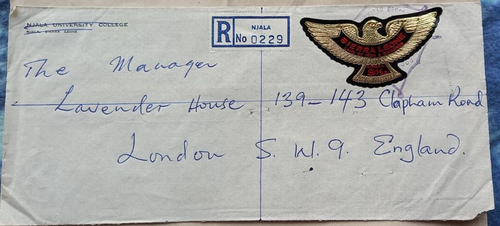 NJALA UNIVERSITY COLLEGE
NJALA SIERRA LEONE
R
NJALA
No 0229
SIERRA LEONE
The Manager
Lavender House 139-143 Clapham Road
London S.W.9. England.